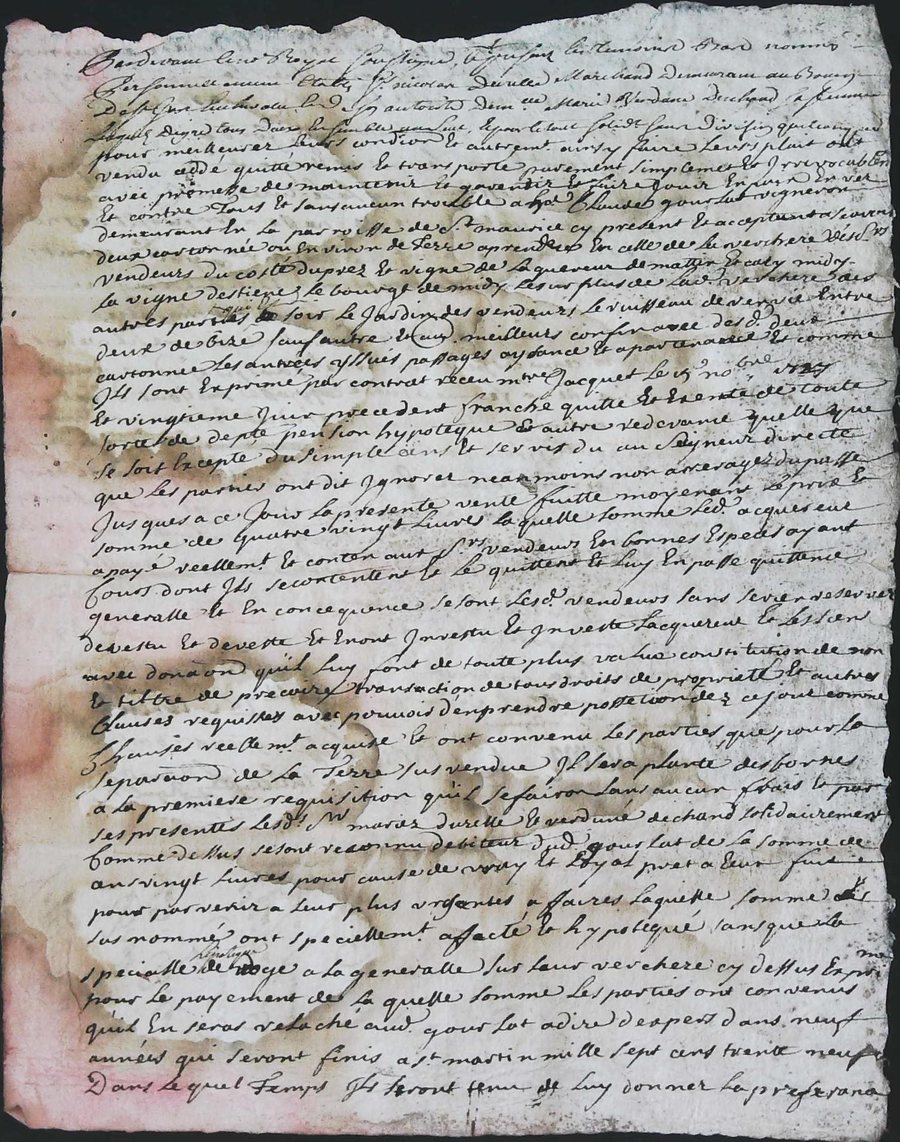 Pardevant le no.re Royal soussigné, et presens les tesmoins bas nommés
Personnellement Etably Sr. nicolas Durelle Marchand Demeurant au Bourg
autorité dem.lle Marie Verdune Dechand, sa femme
Lesquels degré tous Deux Ensemble un seul, et pour le tout solid.t sans Division quelconque
pour meilleurer Leurs condion et autrem.t ainsy faire Leurs plait ont
vendu cédé quitté remis Et transporté purement simplemet Et Irrevocablem
avec promesse de maintenir Et garentir Et faire Jouir Enpaix En ver
Et contre Tous Et sans aucun trouble a Claude gourlat vigneron
demeurant En La parroisse de St. maurice cy present Et acceptant ascavoir
deux cartonnée ou Environ de Terre aprendre En celle de La verchere Desd. Srs
vendeurs du costé du prez Et vigne de Laqueveur de mattin Et cety midy
La vigne destienez Le bourge de midy Le surplus de Lad. verchere des
autres parties Le soir Le Jardin des vendeurs Le ruisseau de vervie Entre
deux de bize sauf autre Et aux meilleurs confin avec desd. deux
cartonnée Les antrées yssues passages aysance Et apartenance Et comme
Ils sont Exprimé par contrat receu m.tre Jacquet Le 5e nobre
Et vingtieme Juin precedent franche quitte Et Exente de toute
sorte de depte pension hypoteque Et autre redevance quelle que
se soit Excepté du simple cens Et servis du au Seyneur directe
que Les parties ont dit Ignorer neanmoins non arreragez du passé
Jusques a ce Jour La presente vente faitte moyenant Le prix Et
somme de quatre vingt Livres Laquelle somme Led. acquereur
a payé reellem.t Et contan aux Srs vendeurs En bonnes Especes ayant
Cours dont Ils secontentent Et Le quittent Et Luy En passe quittance
generalle Et En concequence se sont Lesd. vendeurs sans se rien reserver
devestu Et deveste Et En ont Investu Et Investe Lacquereur Et Les siens
avec donaon quil Luy font de toute plus value constitution de nom
Et tiltre de precaire transaction de tous droits de proprieté Et autres
Clauses requisses avec pouvois d'enprendre possetion dez ce Jour comme
Chauses reellem.t acquise Et ont convenu Les parties que pour La
separaon de La Terre sus vendue Il sera planté des bornes
a La premiere requisition quil se faira sans aucun frais Et par
ses presentes Lesd. Srs mariez durelle Et verdune dechand solidairement
Comme dessus se sont reconnu debiteur dud. gourlat de La somme de
ans vingt Livres pour cause de vray Et Loyal pret a Eux fait
pour parvenir a Leur plus urgentes affaires Laquelle somme Les
sus nommé ont speciellem.t affecté Et hypotequé sans que La
specialle deroge a La generalle sur Leur verchere cy dessus Exprimé
pour Le payement de La quelle somme Les parties ont convenus
quil En seras relaché aud. gourlat adire d'expers dans neuf
années qui seront finis a St. martin mille sept cens trente neuf
Dans Lequel Temps Ils seront tenu de Luy donner La preferance